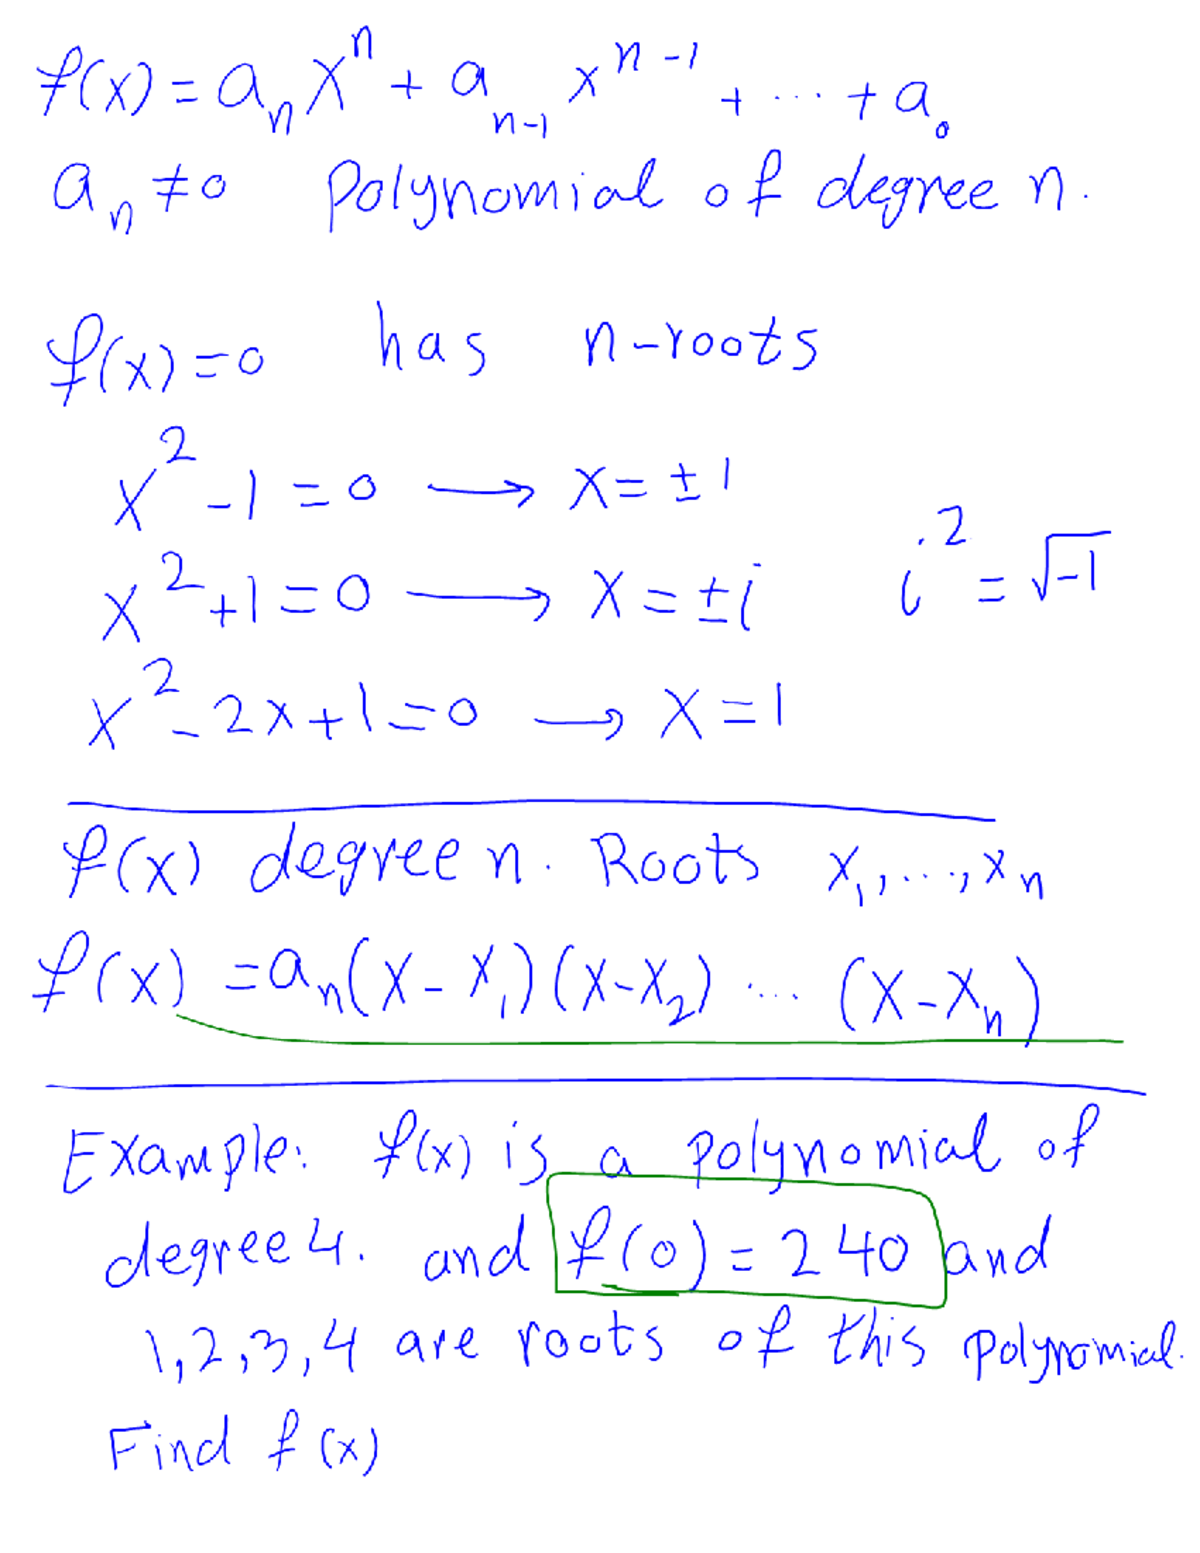 f(x) = aₙxⁿ + aₙ₋₁ xⁿ⁻¹ + ... + a₀
aₙ ≠ 0 Polynomial of degree n.
f(x) = 0 has n-roots
x² - 1 = 0 → x = ± 1
x² + 1 = 0 → x = ± i i² = √-1
x² - 2x + 1 = 0 → x = 1
f(x) degree n. Roots x₁, ..., xₙ
f(x) = aₙ(x - x₁)(x - x₂) ... (x - xₙ)
Example: f(x) is a polynomial of
degree 4. and f(0) = 240 and
1, 2, 3, 4 are roots of this polynomial.
Find f(x)